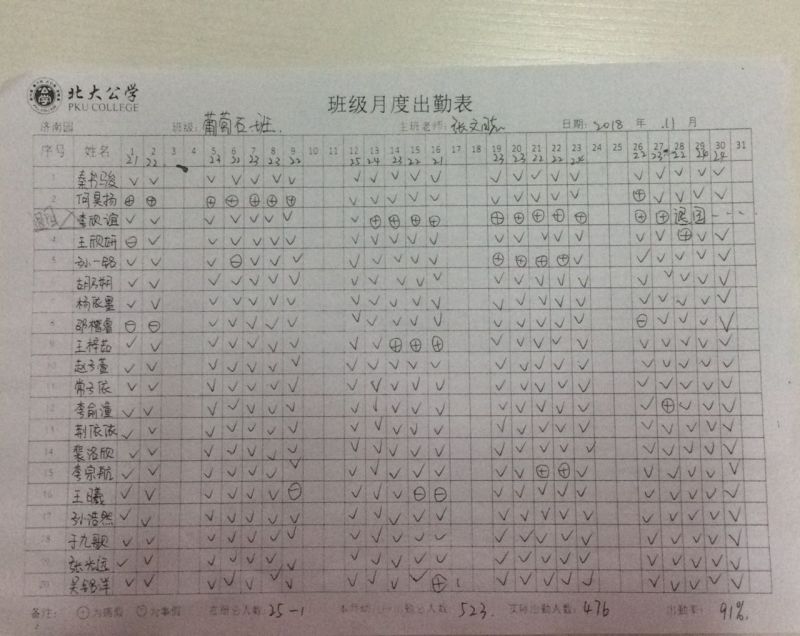 北大公学
PKU COLLEGE
班级月度出勤表
济南园 班级: 葡萄五班 主班老师: 张文 日期: 2018 年 11 月
序号 姓名 1 2 3 4 5 6 7 8 9 10 11 12 13 14 15 16 17 18 19 20 21 22 23 24 25 26 27 28 29 30 31
21 22 23 21 23 23 22 25 24 23 22 21 23 23 22 22 24 22 23 22 24
1 秦书骏 ✓ ✓ ✓ ✓ ✓ ✓ ✓ ✓ ✓ ✓ ✓ ✓ ✓ ✓ ✓ ✓ ✓ ✓ ✓ ✓ ✓ ✓
2 何昊扬 ⊕ ⊕ ⊕ ⊕ ⊕ ⊕ ⊕ ✓ ✓ ✓ ✓ ✓ ✓ ✓ ✓ ✓ ✓ ⊕ ✓ ✓ ✓ ✓
李欣谊 ✓ ✓ ✓ ✓ ✓ ✓ ✓ ✓ ⊕ ⊕ ⊕ ⊕ ⊕ ⊕ ⊕ ⊕ ⊕ ⊕ ⊕ 退园
4 王欣妍 ⊖ ✓ ✓ ✓ ✓ ✓ ✓ ✓ ✓ ✓ ✓ ✓ ✓ ✓ ✓ ✓ ✓ ✓ ✓ ⊕ ✓ ✓
5 孙一铭 ✓ ✓ ✓ ⊖ ✓ ✓ ✓ ✓ ✓ ✓ ✓ ✓ ⊕ ⊕ ⊕ ⊕ ✓ ✓ ✓ ✓ ✓ ✓
✓ ✓ ✓ ✓ ✓ ✓ ✓ ✓ ✓ ✓ ✓ ✓ ✓ ✓ ✓ ✓ ✓ ✓ ✓ ✓ ✓ ✓
杨依墨 ✓ ✓ ✓ ✓ ✓ ✓ ✓ ✓ ✓ ✓ ✓ ✓ ✓ ✓ ✓ ✓ ✓ ✓ ✓ ✓ ✓ ✓
8 邵楷睿 ⊖ ⊖ ✓ ✓ ✓ ✓ ✓ ✓ ✓ ✓ ✓ ✓ ✓ ✓ ✓ ✓ ✓ ⊖ ✓ ✓ ✓ ✓
9 王梓茹 ✓ ✓ ✓ ✓ ✓ ✓ ✓ ✓ ✓ ⊕ ⊕ ⊕ ✓ ✓ ✓ ✓ ✓ ✓ ✓ ✓ ✓ ✓
10 赵子萱 ✓ ✓ ✓ ✓ ✓ ✓ ✓ ✓ ✓ ✓ ✓ ✓ ✓ ✓ ✓ ✓ ✓ ✓ ✓ ✓ ✓ ✓
11 常子依 ✓ ✓ ✓ ✓ ✓ ✓ ✓ ✓ ✓ ✓ ✓ ✓ ✓ ✓ ✓ ✓ ✓ ✓ ✓ ✓ ✓ ✓
12 李俞潼 ✓ ✓ ✓ ✓ ✓ ✓ ✓ ✓ ✓ ✓ ✓ ✓ ✓ ✓ ✓ ✓ ✓ ✓ ⊕ ✓ ✓ ✓
13 荆依依 ✓ ✓ ✓ ✓ ✓ ✓ ✓ ✓ ✓ ✓ ✓ ✓ ✓ ✓ ✓ ✓ ✓ ✓ ✓ ✓ ✓ ✓
14 裴洛欣 ✓ ✓ ✓ ✓ ✓ ✓ ✓ ✓ ✓ ✓ ✓ ✓ ✓ ✓ ✓ ✓ ✓ ✓ ✓ ✓ ✓ ✓
15 李宗航 ✓ ✓ ✓ ✓ ✓ ✓ ✓ ✓ ✓ ✓ ✓ ✓ ✓ ✓ ⊕ ⊕ ✓ ✓ ✓ ✓ ✓ ✓
16 王曦 ✓ ✓ ✓ ✓ ✓ ✓ ⊖ ✓ ✓ ✓ ⊖ ⊖ ✓ ✓ ✓ ✓ ✓ ✓ ✓ ✓ ✓ ✓
17 孙浩然 ✓ ✓ ✓ ✓ ✓ ✓ ✓ ✓ ✓ ✓ ✓ ✓ ✓ ✓ ✓ ✓ ✓ ✓ ✓ ✓ ✓ ✓
18 于九歌 ✓ ✓ ✓ ✓ ✓ ✓ ✓ ✓ ✓ ✓ ✓ ✓ ✓ ✓ ✓ ✓ ✓ ✓ ✓ ✓ ✓ ✓
19 张光远 ✓ ✓ ✓ ✓ ✓ ✓ ✓ ✓ ✓ ✓ ✓ ✓ ✓ ✓ ✓ ✓ ✓ ✓ ✓ ✓ ✓ ✓
20 吴铭洋 ✓ ✓ ✓ ✓ ✓ ✓ ✓ ✓ ✓ ✓ ✓ ⊕ ✓ ✓ ✓ ✓ ✓ ✓ ✓ ✓ ✓ ✓
备注: ⊕为病假 ⊖为事假 在册总人数: 25-1 总人数: 523 实际出勤人数: 476 出勤率: 91%